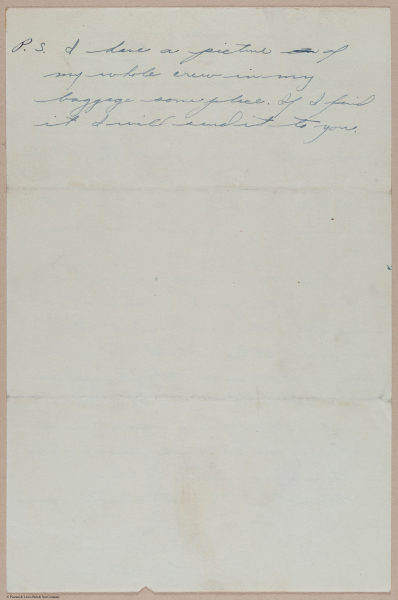 P. S. I have a picture of
my whole crew in my
baggage someplace. If I find
it I will send it to you.